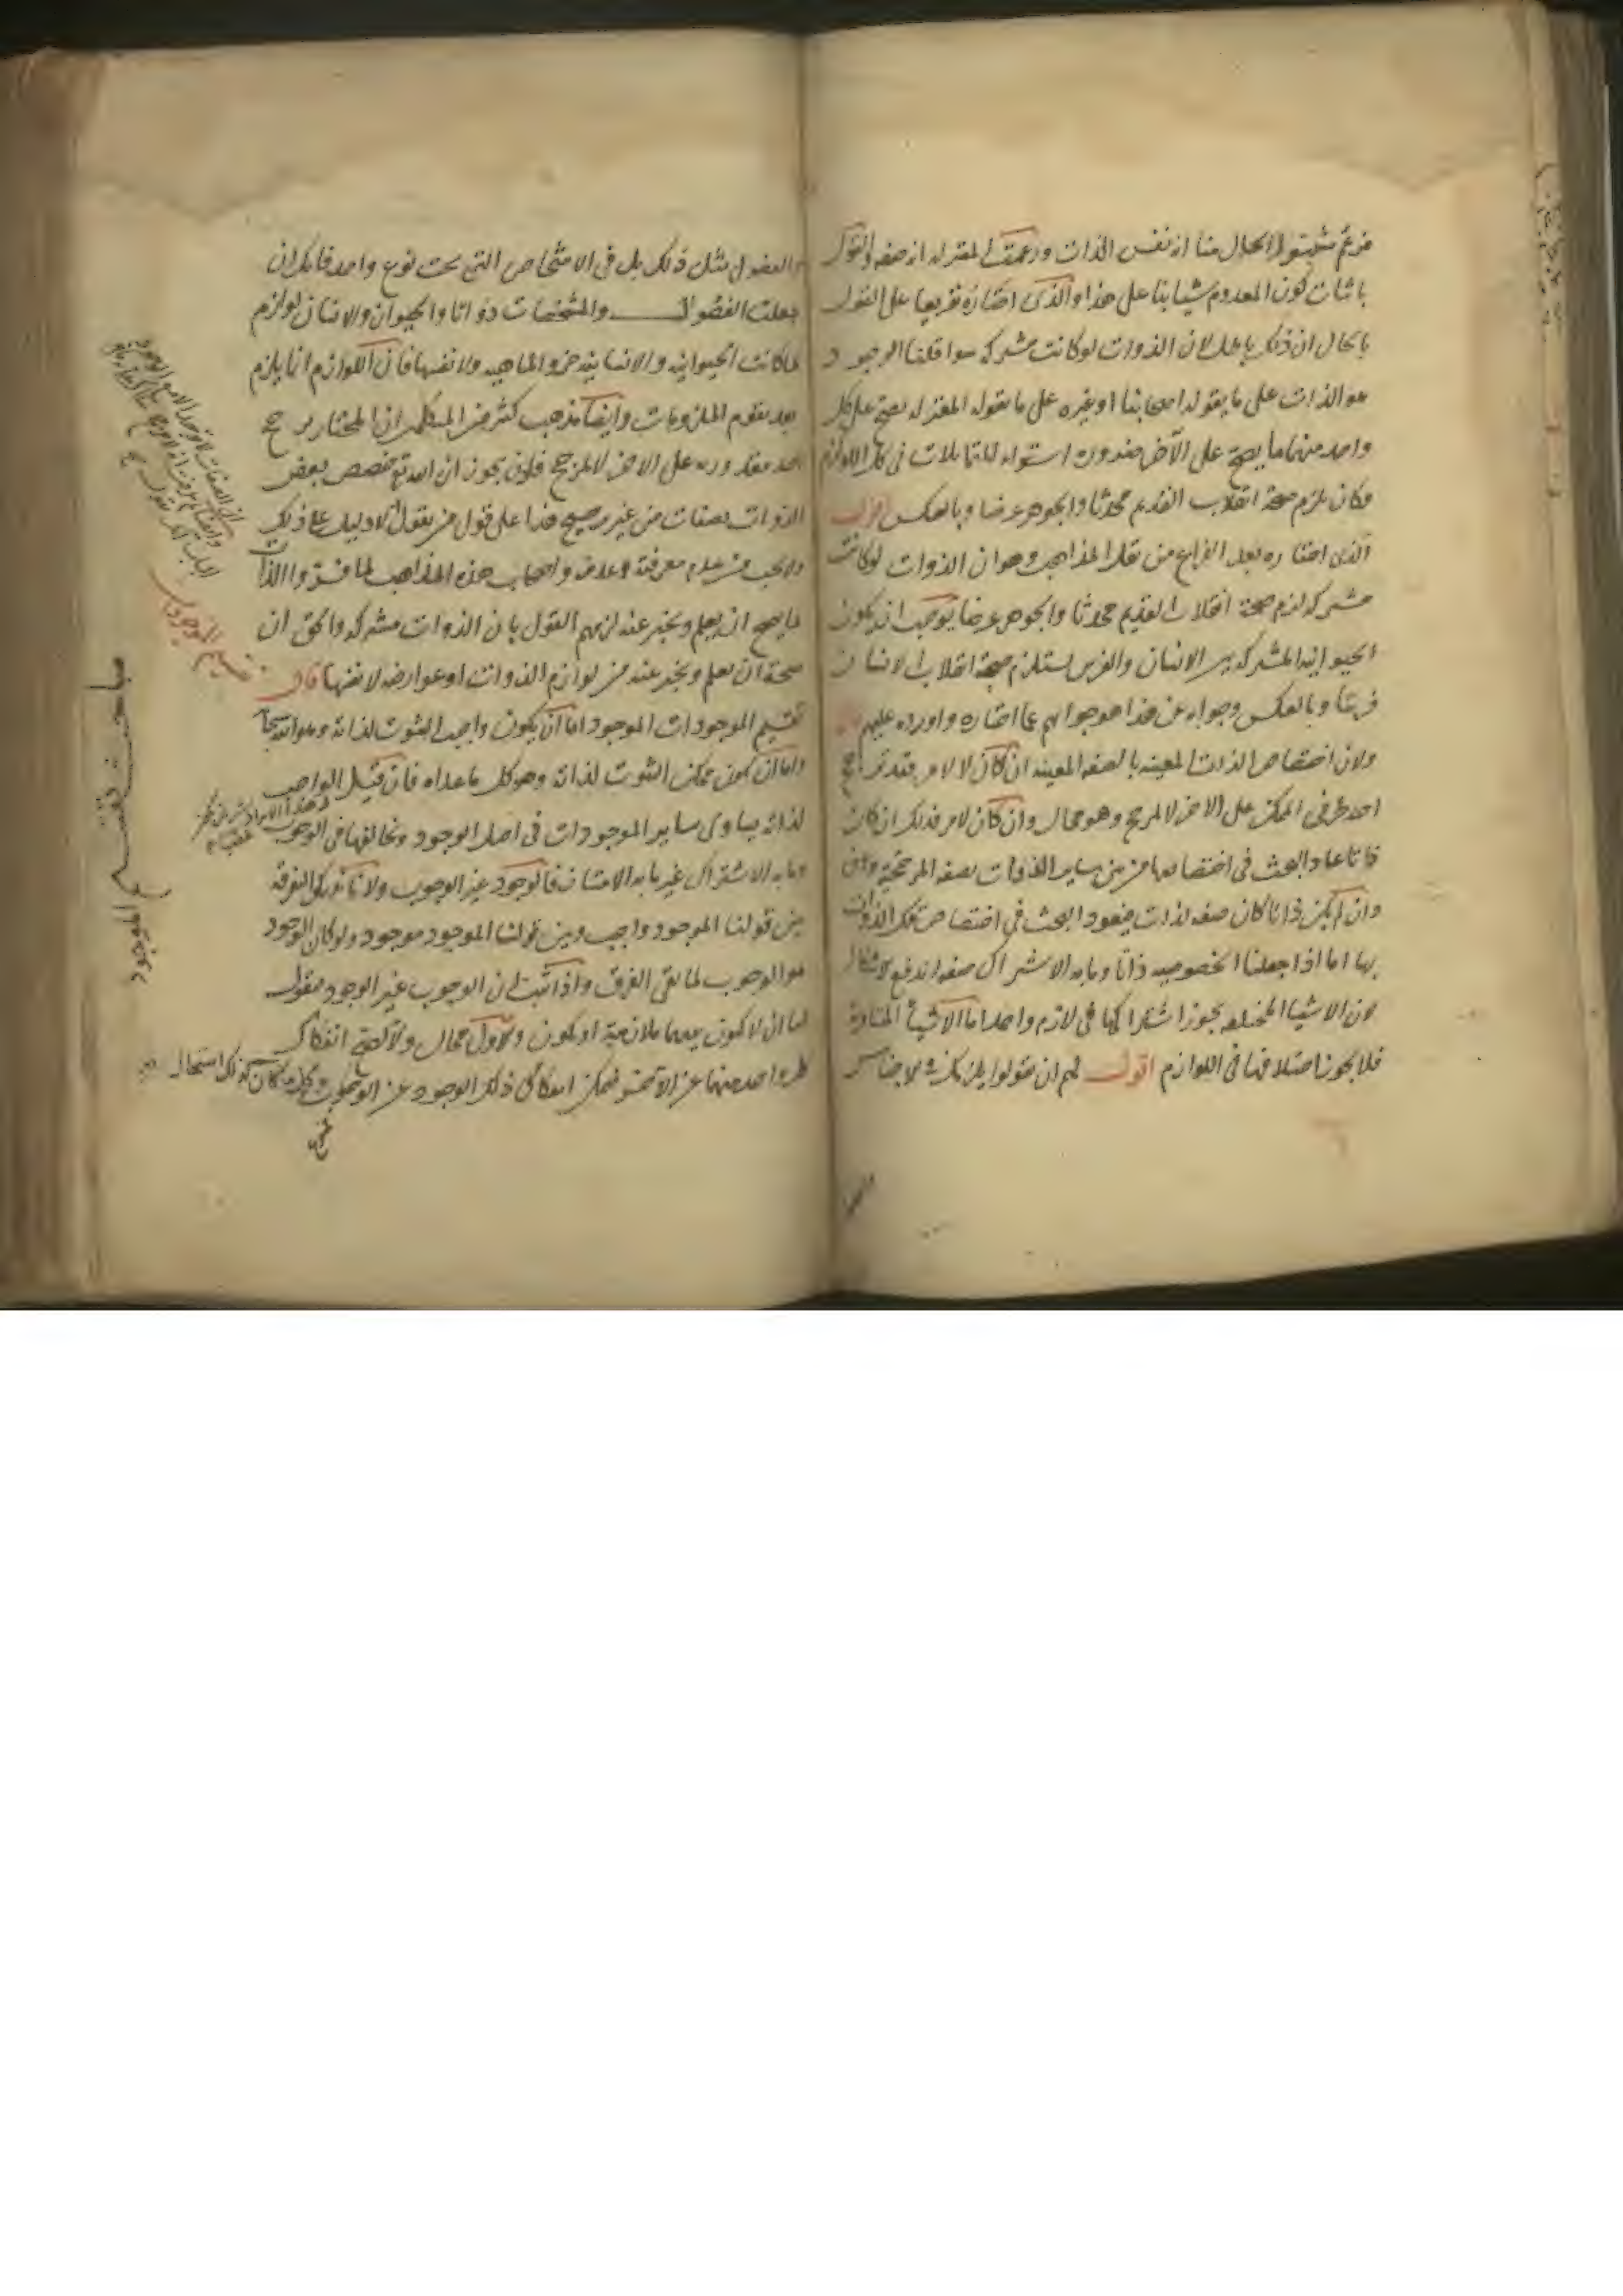 فزعم مثبتوا الحال منا انه نفس الذات وزعمت المعتزلة انه صفة والقول
باثبات كون المعدوم شيئا بناء على هذا والذى اختاره تفريعا على القول
بالحال ان ذلك باطل لان الذوات لو كانت مشتركة سوا قلنا الوجود
هو الذات على ما يقوله اصحابنا او غيره على ما يقوله المعتزلة يصح على كل
واحد منها ما يصح على الآخر ضرورة استواء المتماثلات في كل اللوازم
فكان يلزم صحة انقلاب القديم محدثا والجوهر عرضا وبالعكس اقول
الذى اختاره بعد الفراغ من نقل المذاهب وهو ان الذوات لو كانت
مشتركة لزم صحة انقلاب القديم محدثا والجوهر عرضا يوجب ان يكون
الحيوانية المشتركة بين الانسان والفرس يستلزم صحة انقلاب الانسان
فرسا وبالعكس وجوابه عن هذا هو جوابهم عما اختاره واورده عليهم
ولان اختصاص الذات المعينة بالصفة المعينة ان كان لا لامر فقد ترجح
احد طرفى الممكن على الآخر لا لمرجح وهو محال وان كان لامر فذلك ان كان
ذاتا عاد البحث في اختصاصها من بين ساير الذوات بصفة المرجحية
وان لم يكن ذاتا كان صفة لذات فيعود البحث في اختصاص تلك الذوات
بها اما اذا جعلنا الخصوصية ذاتا وما به الاشتراك صفة اندفع الاشكال
لان الاشيا المختلفة يجوز اشتراكها في لازم واحد اما الاشيأ المتساوية
فلا يجوز اختلافها في اللوازم اقول لهم ان يقولوا يلزمك في الاجناس
والفصول مثل ذلك بل في الاشخاص التى تحت نوع واحد فانك ان
جعلت الفصول والمشخصات ذواتا والحيوان والانسان لوازم
لما كانت الحيوانية والانسانية جزو الماهية ولا نفسها فان اللوازم انما يلزم
بعد تقوم الملزومات وايضا مذهب كثير من المتكلمين ان المختار يرجح
احد مقدوريه على الآخر لا لمرجح فلم لا يجوز ان الله تع خصص بعض
الذوات بصفات من غير مرجح هذا على قول من يقول لا دليل على ذلك
ولا يجب من عدم معرفته عدمه واصحاب هذه المذاهب لما فسروا الذات
بما يصح ان يعلم ويخبر عنه لزمهم القول بان الذوات مشتركة والحق ان
صحة ان يعلم ويخبر عنه من لوازم الذوات او عوارضه لا نفسها قال
تقسيم الموجودات الموجود اما ان يكون واجب الثبوت لذاته وهو الله تعالى
واما ان يكون ممكن الثبوت لذاته وهو كل ما عداه فان قيل الواجب
لذاته يساوى ساير الموجودات في اصل الوجود ويخالفها في الوجوب
وما به الاشتراك غير ما به الامتياز فالوجود غير الوجوب ولانا ندرك التفرقة
بين قولنا الموجود واجب وبين قولنا الموجود موجود ولو كان الوجود
هو الوجوب لما بقى الفرق واذا ثبت ان الوجوب غير الوجود فنقول
اما ان لا يكون بينهما ملازمة او يكون والاول محال والا لصح انفكاك
كل واحد منهما عن الآخر فيمكن انفكاك ذلك الوجود عن الوجوب وكل ما كان كذلك استحال
تقسيم الموجودات
مباحث تقسيم الموجود